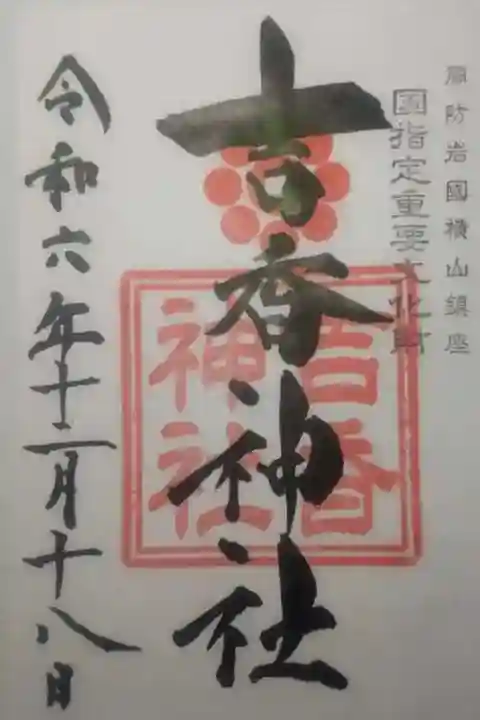 周防岩國横山鎮座
國指定重要文化財
吉香神社
吉香
神社
令和六年十二月十八日